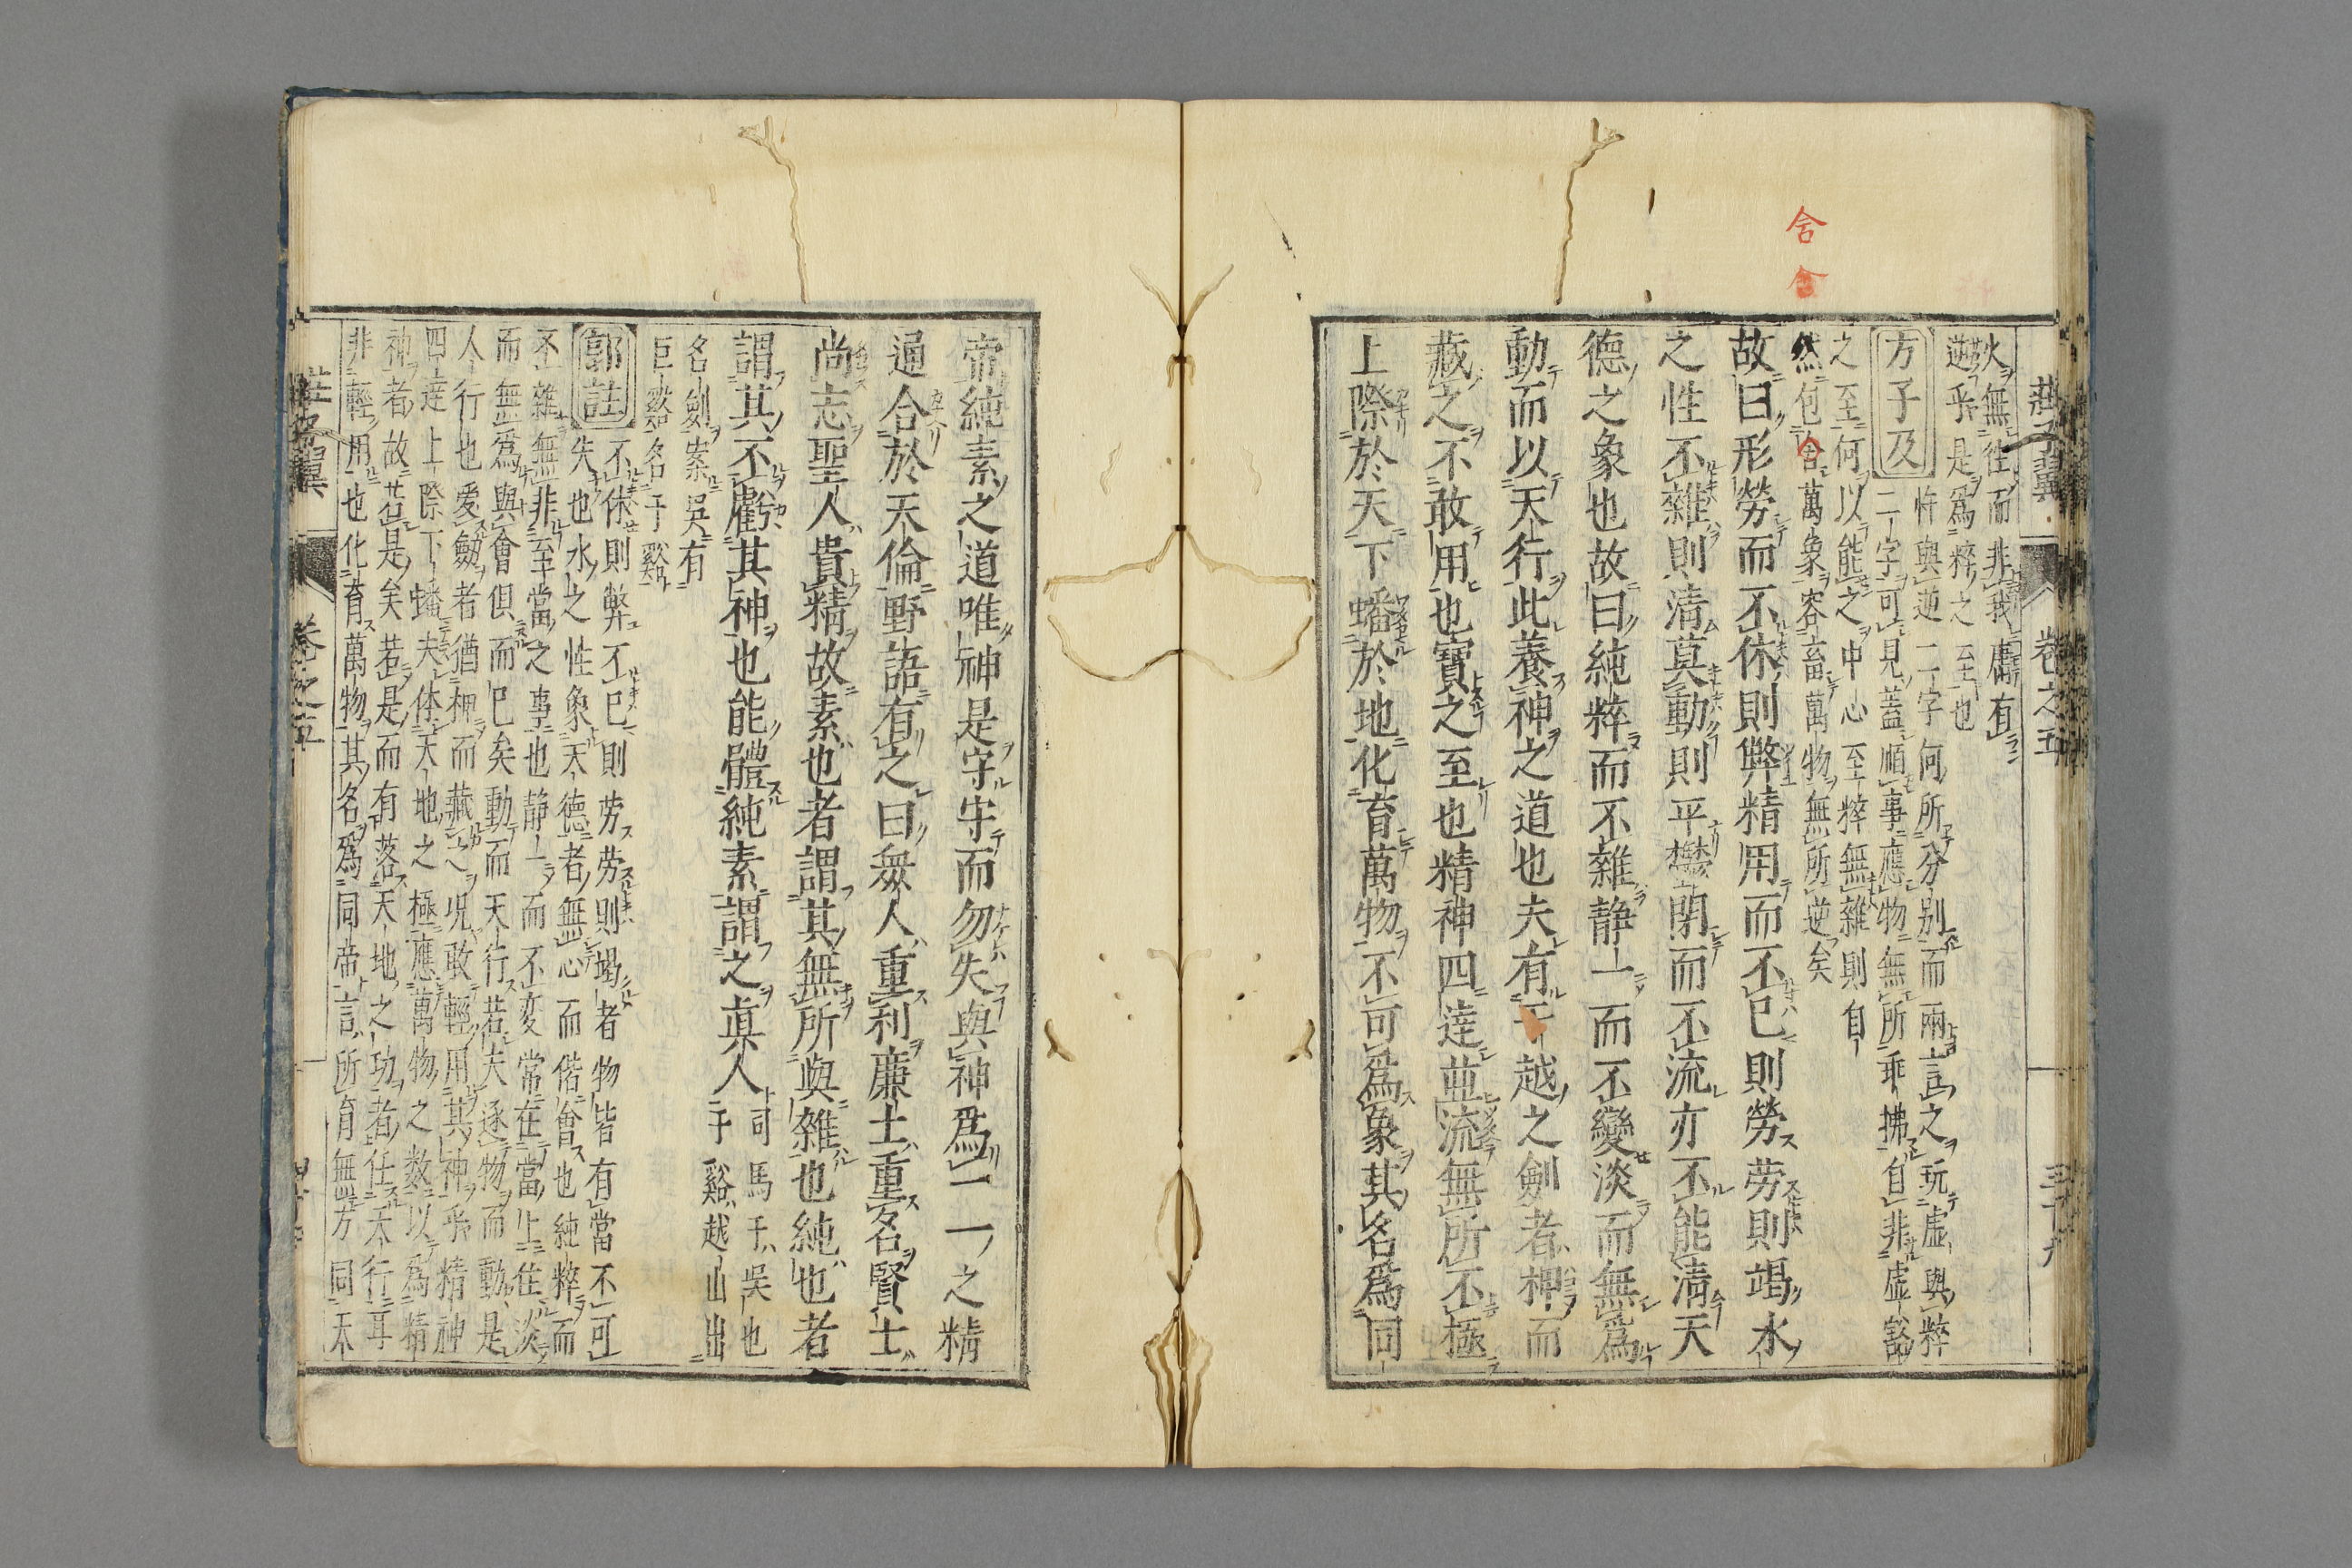 莊子翼 卷之五 三十九
火無往而非我虜有
逆乎是爲粹之至也
方子及
忤與逆二字何所分別而兩言之玩虛與粹
二字可見蓋順事應物無所乖拂自非虛豁
之至何以能之中心至粹無雜則自
然包含萬象容畜萬物無所逆矣
舍
含
故曰形勞而不休則弊精用而不已則勞勞則竭水
之性不雜則清莫動則平鬱閉而不流亦不能清天
德之象也故曰純粹而不雜靜一而不變淡而無爲
動而以天行此養神之道也夫有干越之劍者柙而
藏之不敢用也寶之至也精神四達並流無所不極
上際於天下蟠於地化育萬物不可爲象其名爲同
帝純素之道唯神是守守而勿失與神爲一一之精
通合於天倫野語有之曰衆人重利廉士重名賢士
尚志聖人貴精故素也者謂其無所與雜也純也者
謂其不虧其神也能體純素謂之眞人
司馬云吳也
干谿越山出
名劍案吳有
谿名干谿
郭註
不休則弊不已則劳劳則竭者物皆有當不可
失也水之性象天德者無心而偕會也純粹而
不雜無非至當之事也静一而不変常在當上住淡
而無爲與會俱而已矣動而天行若夫逐物而動是
人行也爱劔者猶柙而藏之况敢輕用其神乎精神
四達上際下蟠夫体天地之極應萬物之数以爲精
神者故若是矣若是而有落天地之功者任天行耳
非輕用也化育萬物其名爲同帝言所育無方同天
莊子翼 卷之五 四十